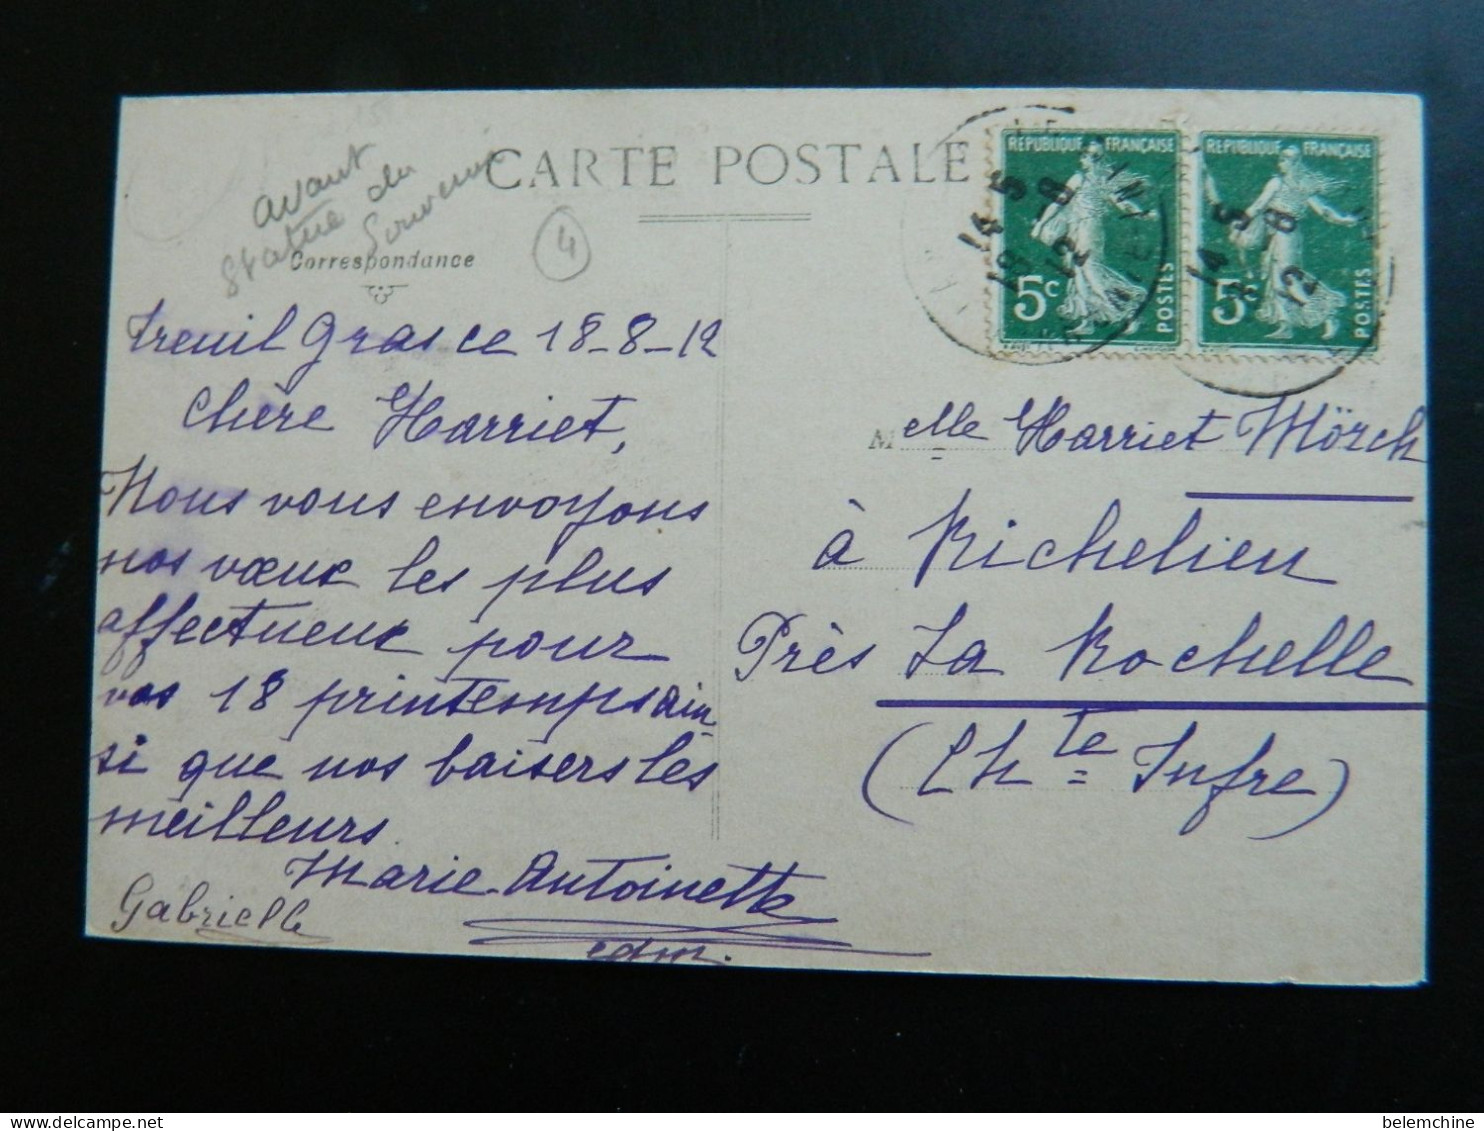 CARTE POSTALE
avant
statue du
Souvenir
4
Correspondance
Treuil Gras ce 18-8-12
Chère Harriet,
Nous vous envoyons
nos vœux les plus
affectueux pour
vos 18 printemps ain
si que nos baisers les
meilleurs.
Marie-Antoinette
Gabrielle
RÉPUBLIQUE FRANÇAISE
5c
POSTES
RÉPUBLIQUE FRANÇAISE
5c
POSTES
14 5
19 - 8
12
14 5
19 - 8
12
Melle Harriet Mörch
à Richelieu
Près La Rochelle
(Chte Infre)
belemchine